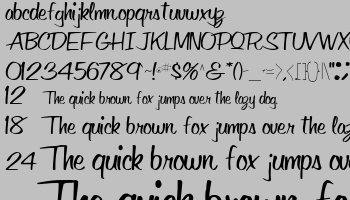 abcdefghijklmnopqrstuvwxyz
ABCDEFGHIJKLMNOPQRSTUVWX
0123456789~!#$%^&*()-_=>,<[]{}\"
12 The quick brown fox jumps over the lazy dog.
18 The quick brown fox jumps over the lazy
24 The quick brown fox jumps over
The quick brown